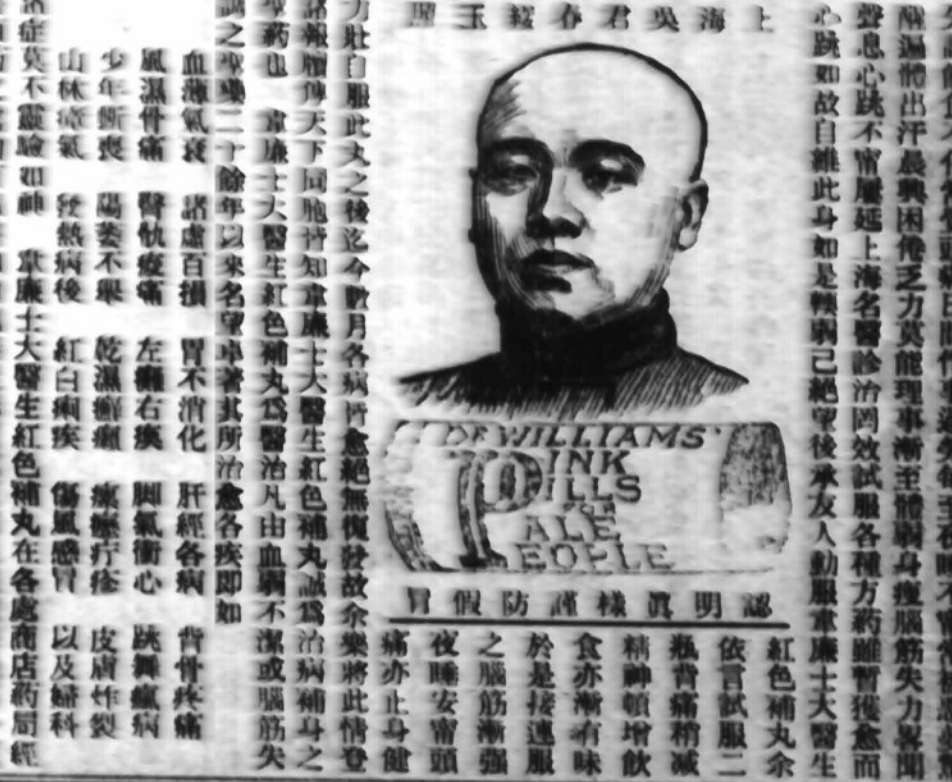 上海吳君春綬玉照
醒遍體出汗晨興困倦乏力莫能理事漸至體弱身瘦腦筋失力畧聞
聲息心跳不甯屢延上海名醫診治罔效試服各種方藥雖暫獲愈而
心跳如故自維此身如是輭弱已絕望後承友人勸服韋廉士大醫生
DR WILLIAMS'
PINK
PILLS
FOR
PALE
PEOPLE
認明眞樣謹防假冒
紅色補丸余
依言試服二
瓶背痛稍減
精神頓增飲
食亦漸有味
於是接連服
之腦筋漸强
夜睡安甯頭
痛亦止身健
力壯自服此丸之後迄今數月各病皆愈絕無復發故余樂將此情登
諸報牘俾天下同胞皆知韋廉士大醫生紅色補丸誠爲治病補身之
聖藥也 韋廉士大醫生紅色補丸爲醫治凡由血弱不潔或腦筋失
調之聖藥二十餘年以來名望卓著其所治愈各疾即如
血薄氣衰 諸虛百損 胃不消化 肝經各病 背骨疼痛
風濕骨痛 臀 痛 左癱右瘓 脚氣衝心 跳舞瘋病
少年斲喪 陽萎不舉 乾濕癬癩 瘰癧疔疹 皮膚炸裂
山林瘴氣 發熱病後 紅白痢疾 傷風感冒 以及婦科
諸症莫不靈驗如神 韋廉士大醫生紅色補丸在各處商店藥局經